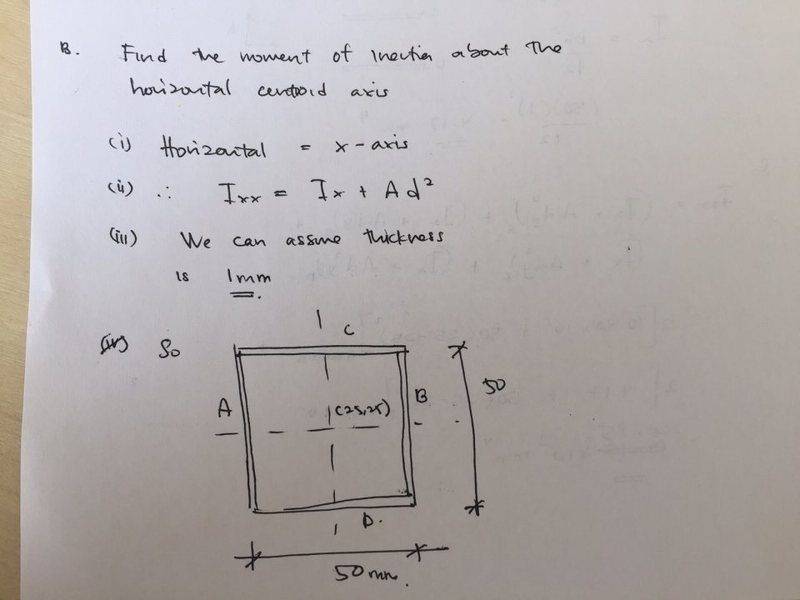 B. Find the moment of inertia about the
horizontal centroid axis
(i) Horizontal = x-axis
(ii) ∴ Ixx = Ix + Ad²
(iii) We can assume thickness
is 1mm
(iv) So
C
A
(25,25)
B
50
D.
50mm.